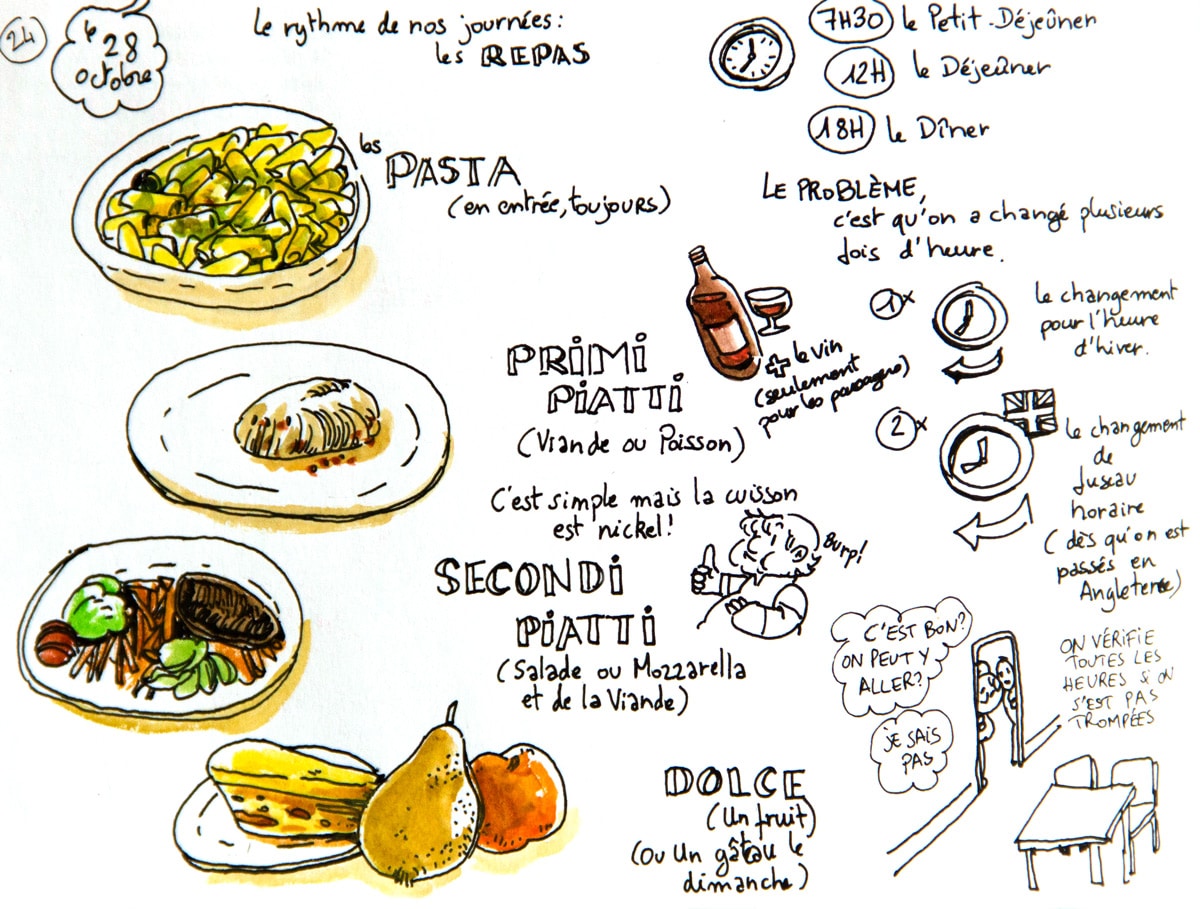 24
le
28
octobre
le rythme de nos journées:
les REPAS
7H30 le Petit-Déjeûner
12H le Déjeûner
18H le Dîner
les PASTA
(en entrée, toujours)
LE PROBLÈME,
c'est qu'on a changé plusieurs
fois d'heure.
1x
le changement
pour l'heure
d'hiver.
PRIMI
PIATTI
(Viande ou Poisson)
+ le vin
(seulement
pour les passagers)
2x
le changement
de
fuseau
horaire
(dès qu'on est
passés en
Angleterre)
C'est simple mais la cuisson
est nickel!
Burp!
SECONDI
PIATTI
(Salade ou Mozzarella
et de la Viande)
C'EST BON?
ON PEUT Y
ALLER?
JE SAIS
PAS
ON VÉRIFIE
TOUTES LES
HEURES SI ON
S'EST PAS
TROMPÉES
DOLCE
(Un fruit)
(Ou Un gâteau le
dimanche)